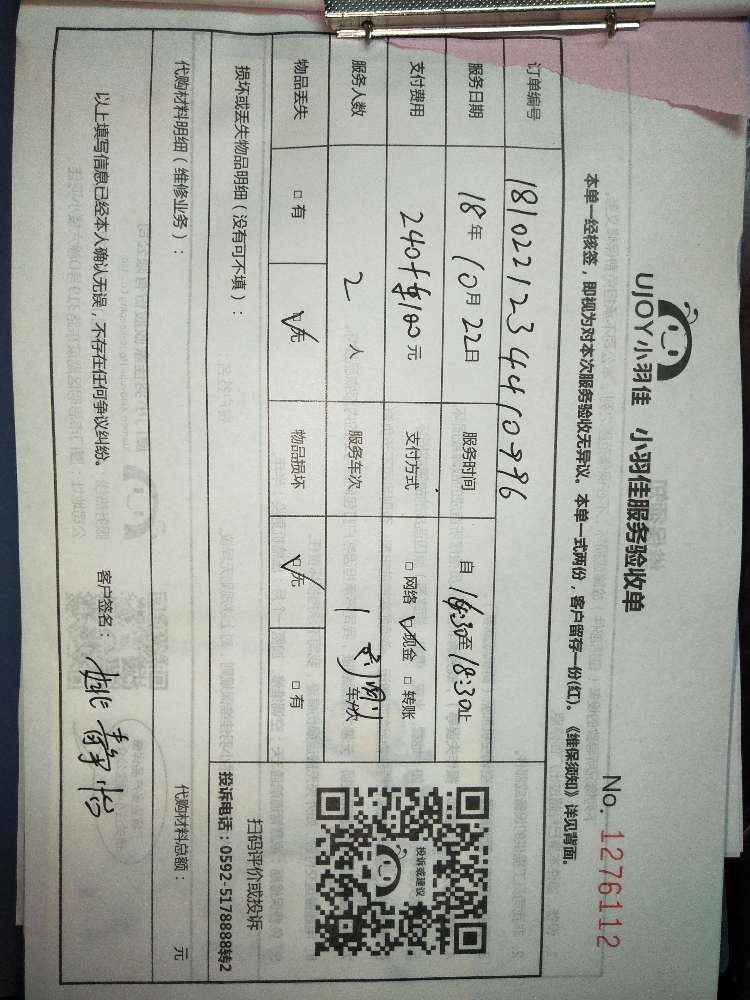 UJOY小羽佳 小羽佳服务验收单
No. 1276112
本单一经核签，即视为对本次服务验收无异议。本单一式两份，客户留存一份(红)。《维保须知》详见背面。
订单编号 1810221234410796
服务日期 18年10月22日 服务时间 自 16:30至18:30止
支付费用 240+ 100元 支付方式 □网络 ☑现金 □转账
服务人数 2人 服务车次 1 车/次
物品丢失 □有 ☑无 物品损坏 ☑无 □有
投诉或建议
扫码评价或投诉
投诉电话：0592-5178888转2
损坏或丢失物品明细（没有可不填）：
代购材料明细（维修业务）： 代购材料总额： 元
以上填写信息已经本人确认无误，不存在任何争议纠纷。 客户签名：